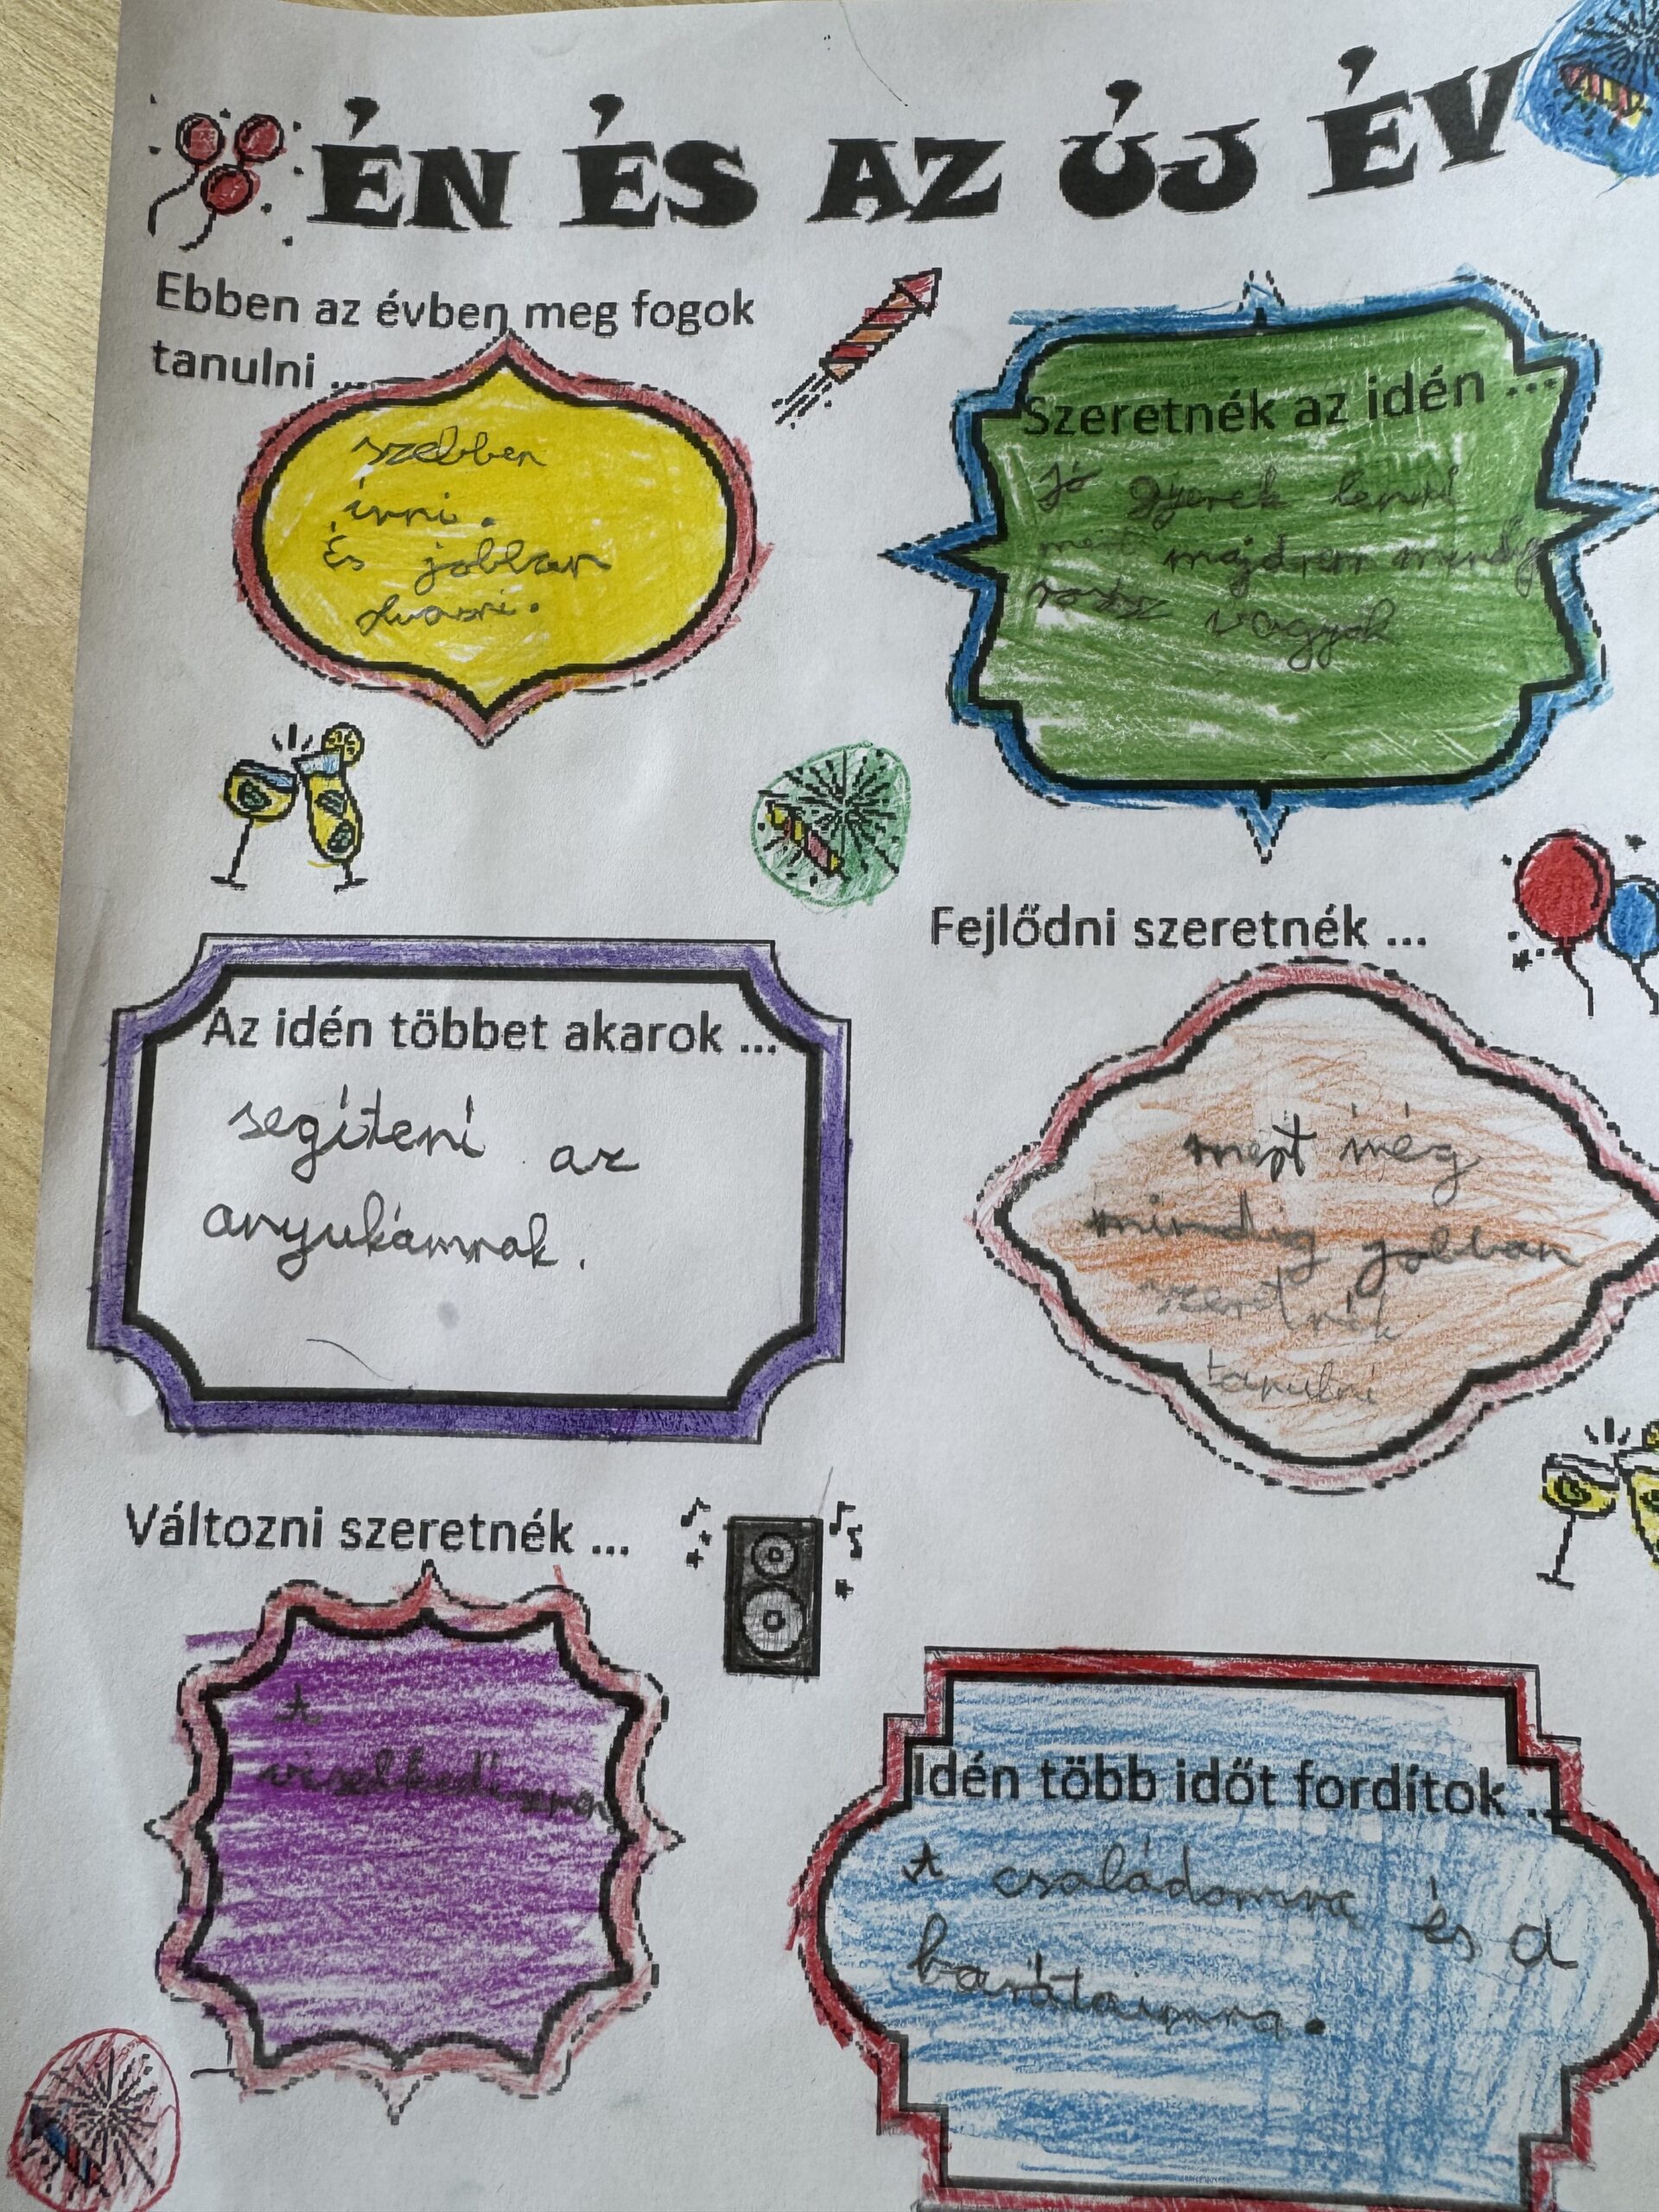 ÉN ÉS AZ ÚJ ÉV
Ebben az évben meg fogok
tanulni ...
szebben
írni.
És jobban
olvasni.
Szeretnék az idén ...
Jó gyerek lenni
mert majdnem mindig
rossz vagyok
Az idén többet akarok ...
segíteni az
anyukámnak.
Fejlődni szeretnék ...
mert még
mindig jobban
szeretnék
tanulni
Változni szeretnék ...
A
viselkedésemen
Idén több időt fordítok ...
A családomra és a
barátaimra.